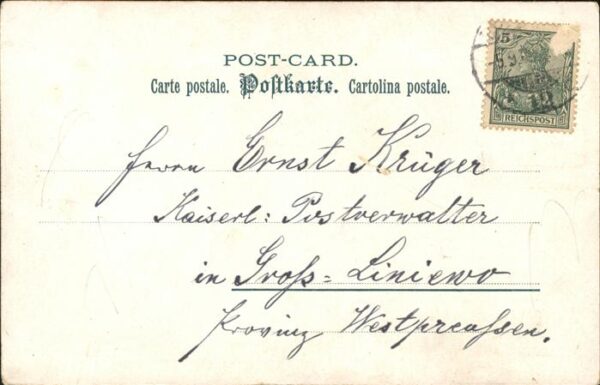 POST-CARD.
Carte postale. Postkarte. Cartolina postale.
5
REICHSPOST
Herrn Ernst Krüger
Kaiserl: Postverwalter
in Groß-Liniewo
Provinz Westpreußen.